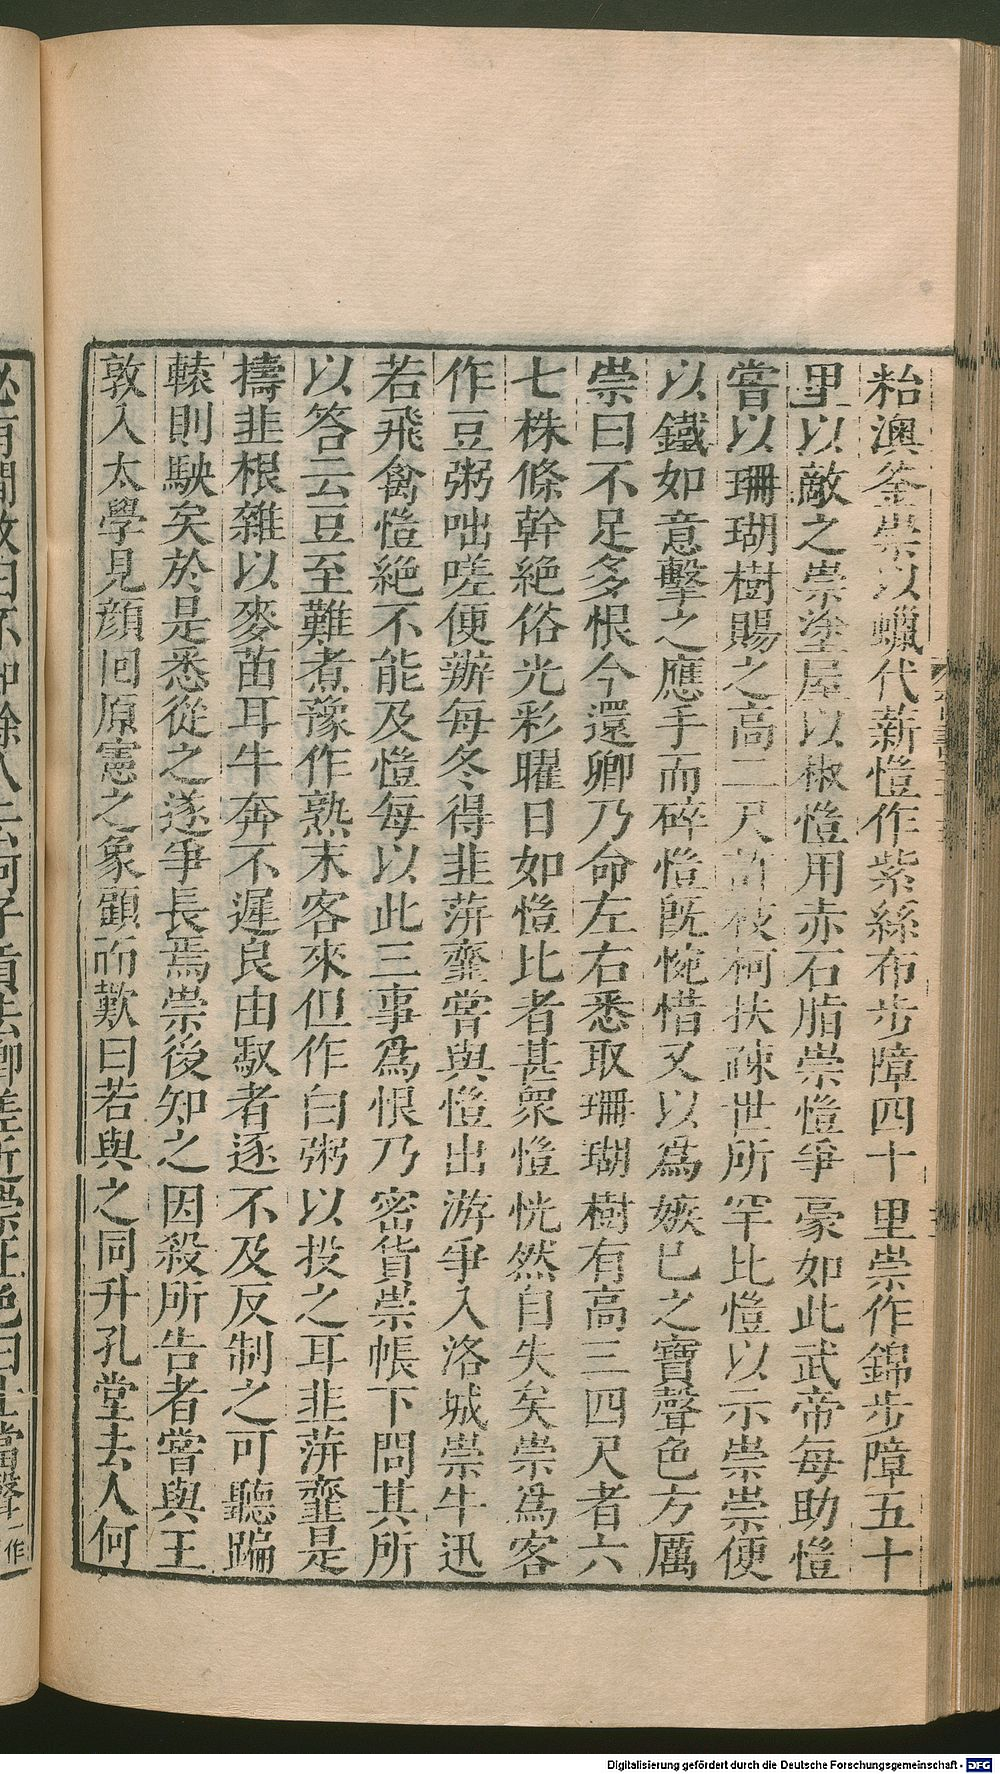 粭澳釜崇以蠟代薪愷作紫絲布步障四十里崇作錦步障五十
里以敵之崇塗屋以椒愷用赤石脂崇愷爭豪如此武帝每助愷
嘗以珊瑚樹賜之高二尺許枝柯扶疎世所罕比愷以示崇崇便
以鐵如意擊之應手而碎愷旣惋惜又以爲嫉已之寶聲色方厲
崇曰不足多恨今還卿乃命左右悉取珊瑚樹有高三四尺者六
七株條幹絶俗光彩曜日如愷比者甚衆愷恍然自失矣崇爲客
作豆粥咄嗟便辦每冬得韭蓱虀嘗與愷出游爭入洛城崇牛迅
若飛禽愷絶不能及愷每以此三事爲恨乃密貨崇帳下問其所
以答云豆至難煮豫作熟末客來但作白粥以投之耳韭蓱虀是
擣韭根雜以麥苗耳牛奔不遲良由馭者逐不及反制之可聽蹁
轅則駃矣於是悉從之遂爭長焉崇後知之因殺所告者嘗與王
敦入太學見顔回原憲之象顧而歎曰若與之同升孔堂去人何
必有間敦曰不知餘人云何子貢去卿差近崇正色曰士當
一作
Digitalisierung gefördert durch die Deutsche Forschungsgemeinschaft - DFG